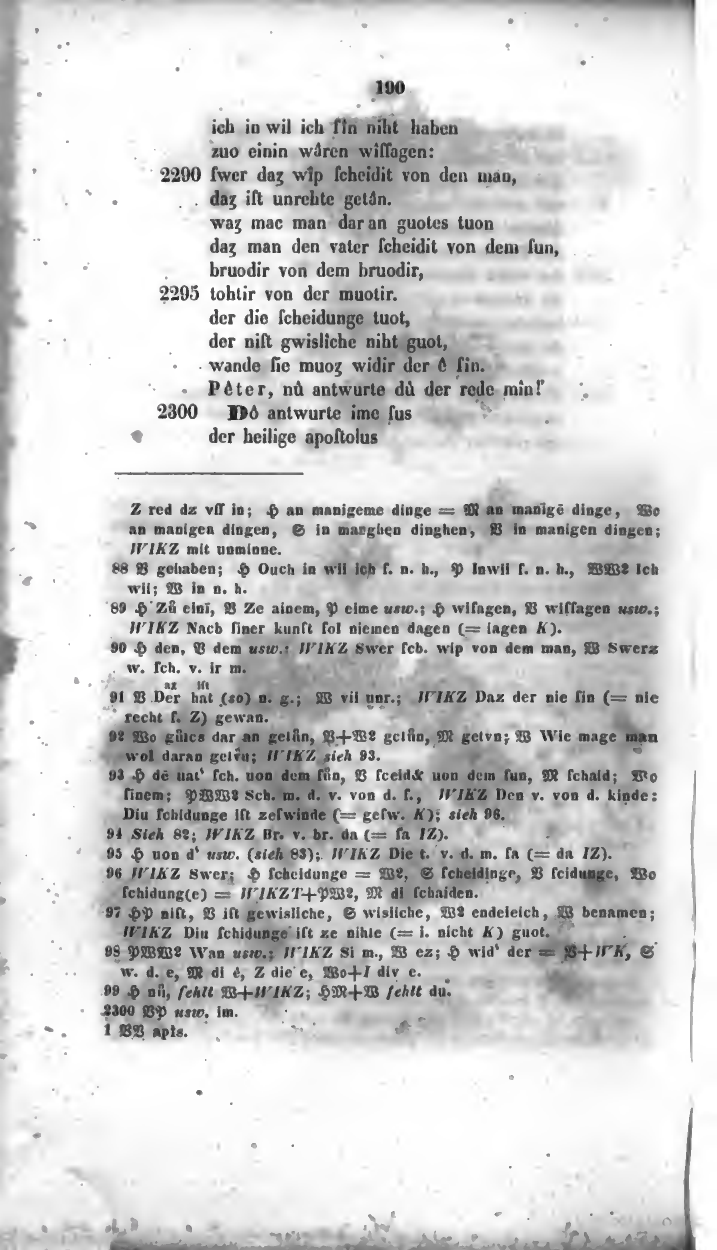 190
ich in wil ich ſîn niht haben
zuo einin wâren wîſſagen:
2290 ſwer daʒ wîp ſcheidit von den man,
daʒ iſt unrehte getân.
waʒ mac man dar an guotes tuon
daʒ man den vater ſcheidit von dem ſun,
bruodir von dem bruodir,
2295 tohtir von der muotir.
der die ſcheidunge tuot,
der niſt gwisliche niht guot,
wande ſie muoʒ widir der ê ſin.
Pêter, nû antwurte dû der rede mîn!'
2300 Dô antwurte ime ſus
der heilige apoſtolus
Z red dz vſſ in; 𝔥 an manigeme dinge = 𝔐 an manīgē dinge, 𝔚o
an manigen dingen, 𝔖 in maeghen dinghen, 𝔅 in manigen dingen;
WIKZ mit unminne.
88 𝔅 gehaben; 𝔥 Ouch in wil ich ſ. n. h., 𝔓 Inwil ſ. n. h., 𝔚𝔅2 Ich
wil; 𝔚 in n. h.
89 𝔥 Zů einī, 𝔅 Ze ainem, 𝔓 eime usw.; 𝔥 wiſagen, 𝔅 wiſſagen usw.;
WIKZ Nach ſiner kunſt ſol niemen dagen (= ſagen K).
90 𝔥 den, 𝔅 dem usw.: WIKZ Swer ſch. wip von dem man, 𝔚 Swerz
w. ſch. v. ir m.
az iſt
91 𝔅 Der hat (so) n. g.; 𝔚 vil unr.; WIKZ Daz der nie ſin (= nie
recht ſ. Z) gewan.
92 𝔚o gůtes dar an getůn, 𝔓+𝔚2 getůn, 𝔐 getvn; 𝔚 Wie mage man
wol daran getvn; WIKZ sieh 93.
93 𝔥 dē uatʿ ſch. uon dem ſůn, 𝔅 ſceid& uon dem ſun, 𝔐 ſchaid; 𝔚o
ſinem; 𝔓𝔚𝔅2 Sch. m. d. v. von d. ſ., WIKZ Den v. von d. kinde:
Diu ſchidunge iſt zeſwinde (= geſw. K); sieh 96.
94 Sieh 82; WIKZ Br. v. br. da (= ſa IZ).
95 𝔥 uon dʿ usw. (sieh 83); WIKZ Die t. v. d. m. ſa (= da IZ).
96 WIKZ Swer; 𝔥 ſcheidunge = 𝔚2, 𝔖 ſcheidinge, 𝔅 ſcidunge, 𝔚o
ſchidung(e) = WIKZT+𝔓𝔚2, 𝔐 di ſchaiden.
97 𝔥𝔓 niſt, 𝔅 iſt gewisliche, 𝔖 wisliche, 𝔚2 endeleich, 𝔚 benamen;
WIKZ Diu ſchidunge iſt ze nihte (= i. nicht K) guot.
98 𝔓𝔚𝔅2 Wan usw.; WIKZ Si m., 𝔚 ez; 𝔥 widʿ der = 𝔅+WK, 𝔖
w. d. e, 𝔐 di ê, Z die e, 𝔚o+I div e.
99 𝔥 nů, fehlt 𝔚+WIKZ; 𝔥𝔐+𝔚 fehlt du.
2300 𝔅𝔓 usw. im.
1 𝔅𝔚 apls.